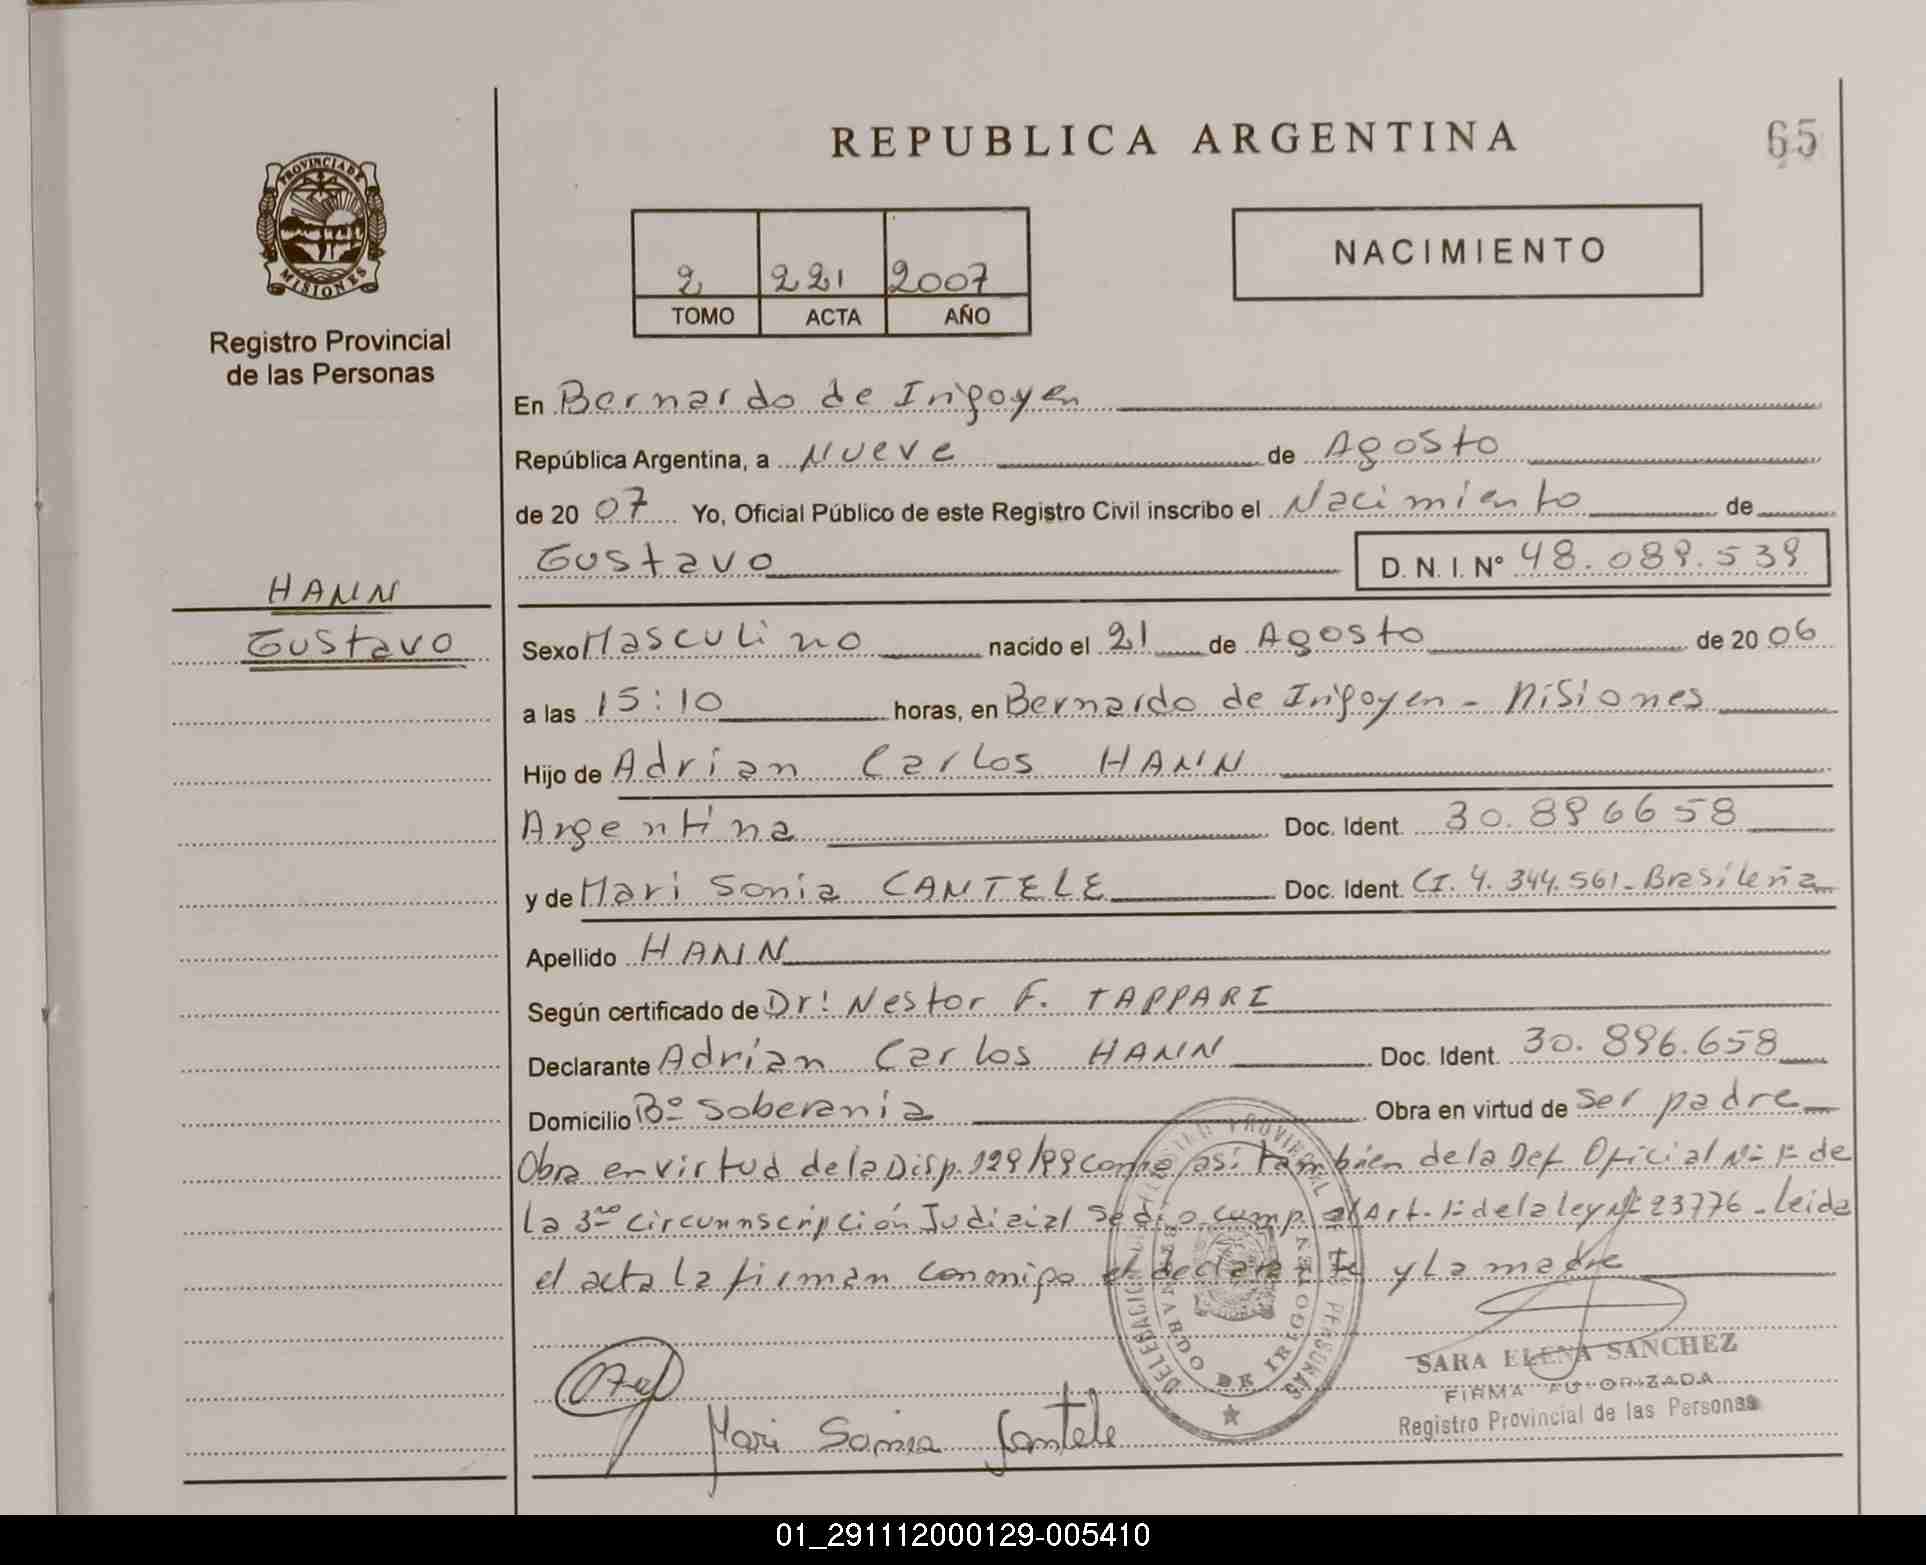 REPUBLICA ARGENTINA
65
PROVINCIA DE
MISIONES
Registro Provincial
de las Personas
2 221 2007
TOMO ACTA AÑO
NACIMIENTO
En Bernardo de Irigoyen
República Argentina, a Nueve de Agosto
de 2007 Yo, Oficial Público de este Registro Civil inscribo el Nacimiento de
Gustavo D. N. I. Nº 48.089.539
HANN
Gustavo
Sexo Masculino nacido el 21 de Agosto de 2006
a las 15:10 horas, en Bernardo de Irigoyen - Misiones
Hijo de Adrian Carlos HANN
Argentina Doc. Ident. 30.896658
y de Mari Sonia CANTELE Doc. Ident. CI. 4.344.561- Brasileña
Apellido HANN
Según certificado de Dr: Nestor F. TAPPARI
Declarante Adrian Carlos HANN Doc. Ident. 30.896.658
Domicilio Bº Soberania Obra en virtud de Ser padre
Obra en virtud de la Disp. 129/99 como asi tambien de la Def. Oficial Nº 1º de
la 3ra Circunnscripción Judicial se dio cump. al Art. 1º de la ley Nº 23776 - Leida
el acta la firman conmigo el declarante y La madre
DELEGACION PROVINCIAL DE LAS PERSONAS
BERNARDO DE IRIGOYEN
Mari Sonia Cantele
SARA ELENA SANCHEZ
FIRMA AUTORIZADA
Registro Provincial de las Personas
01_291112000129-005410